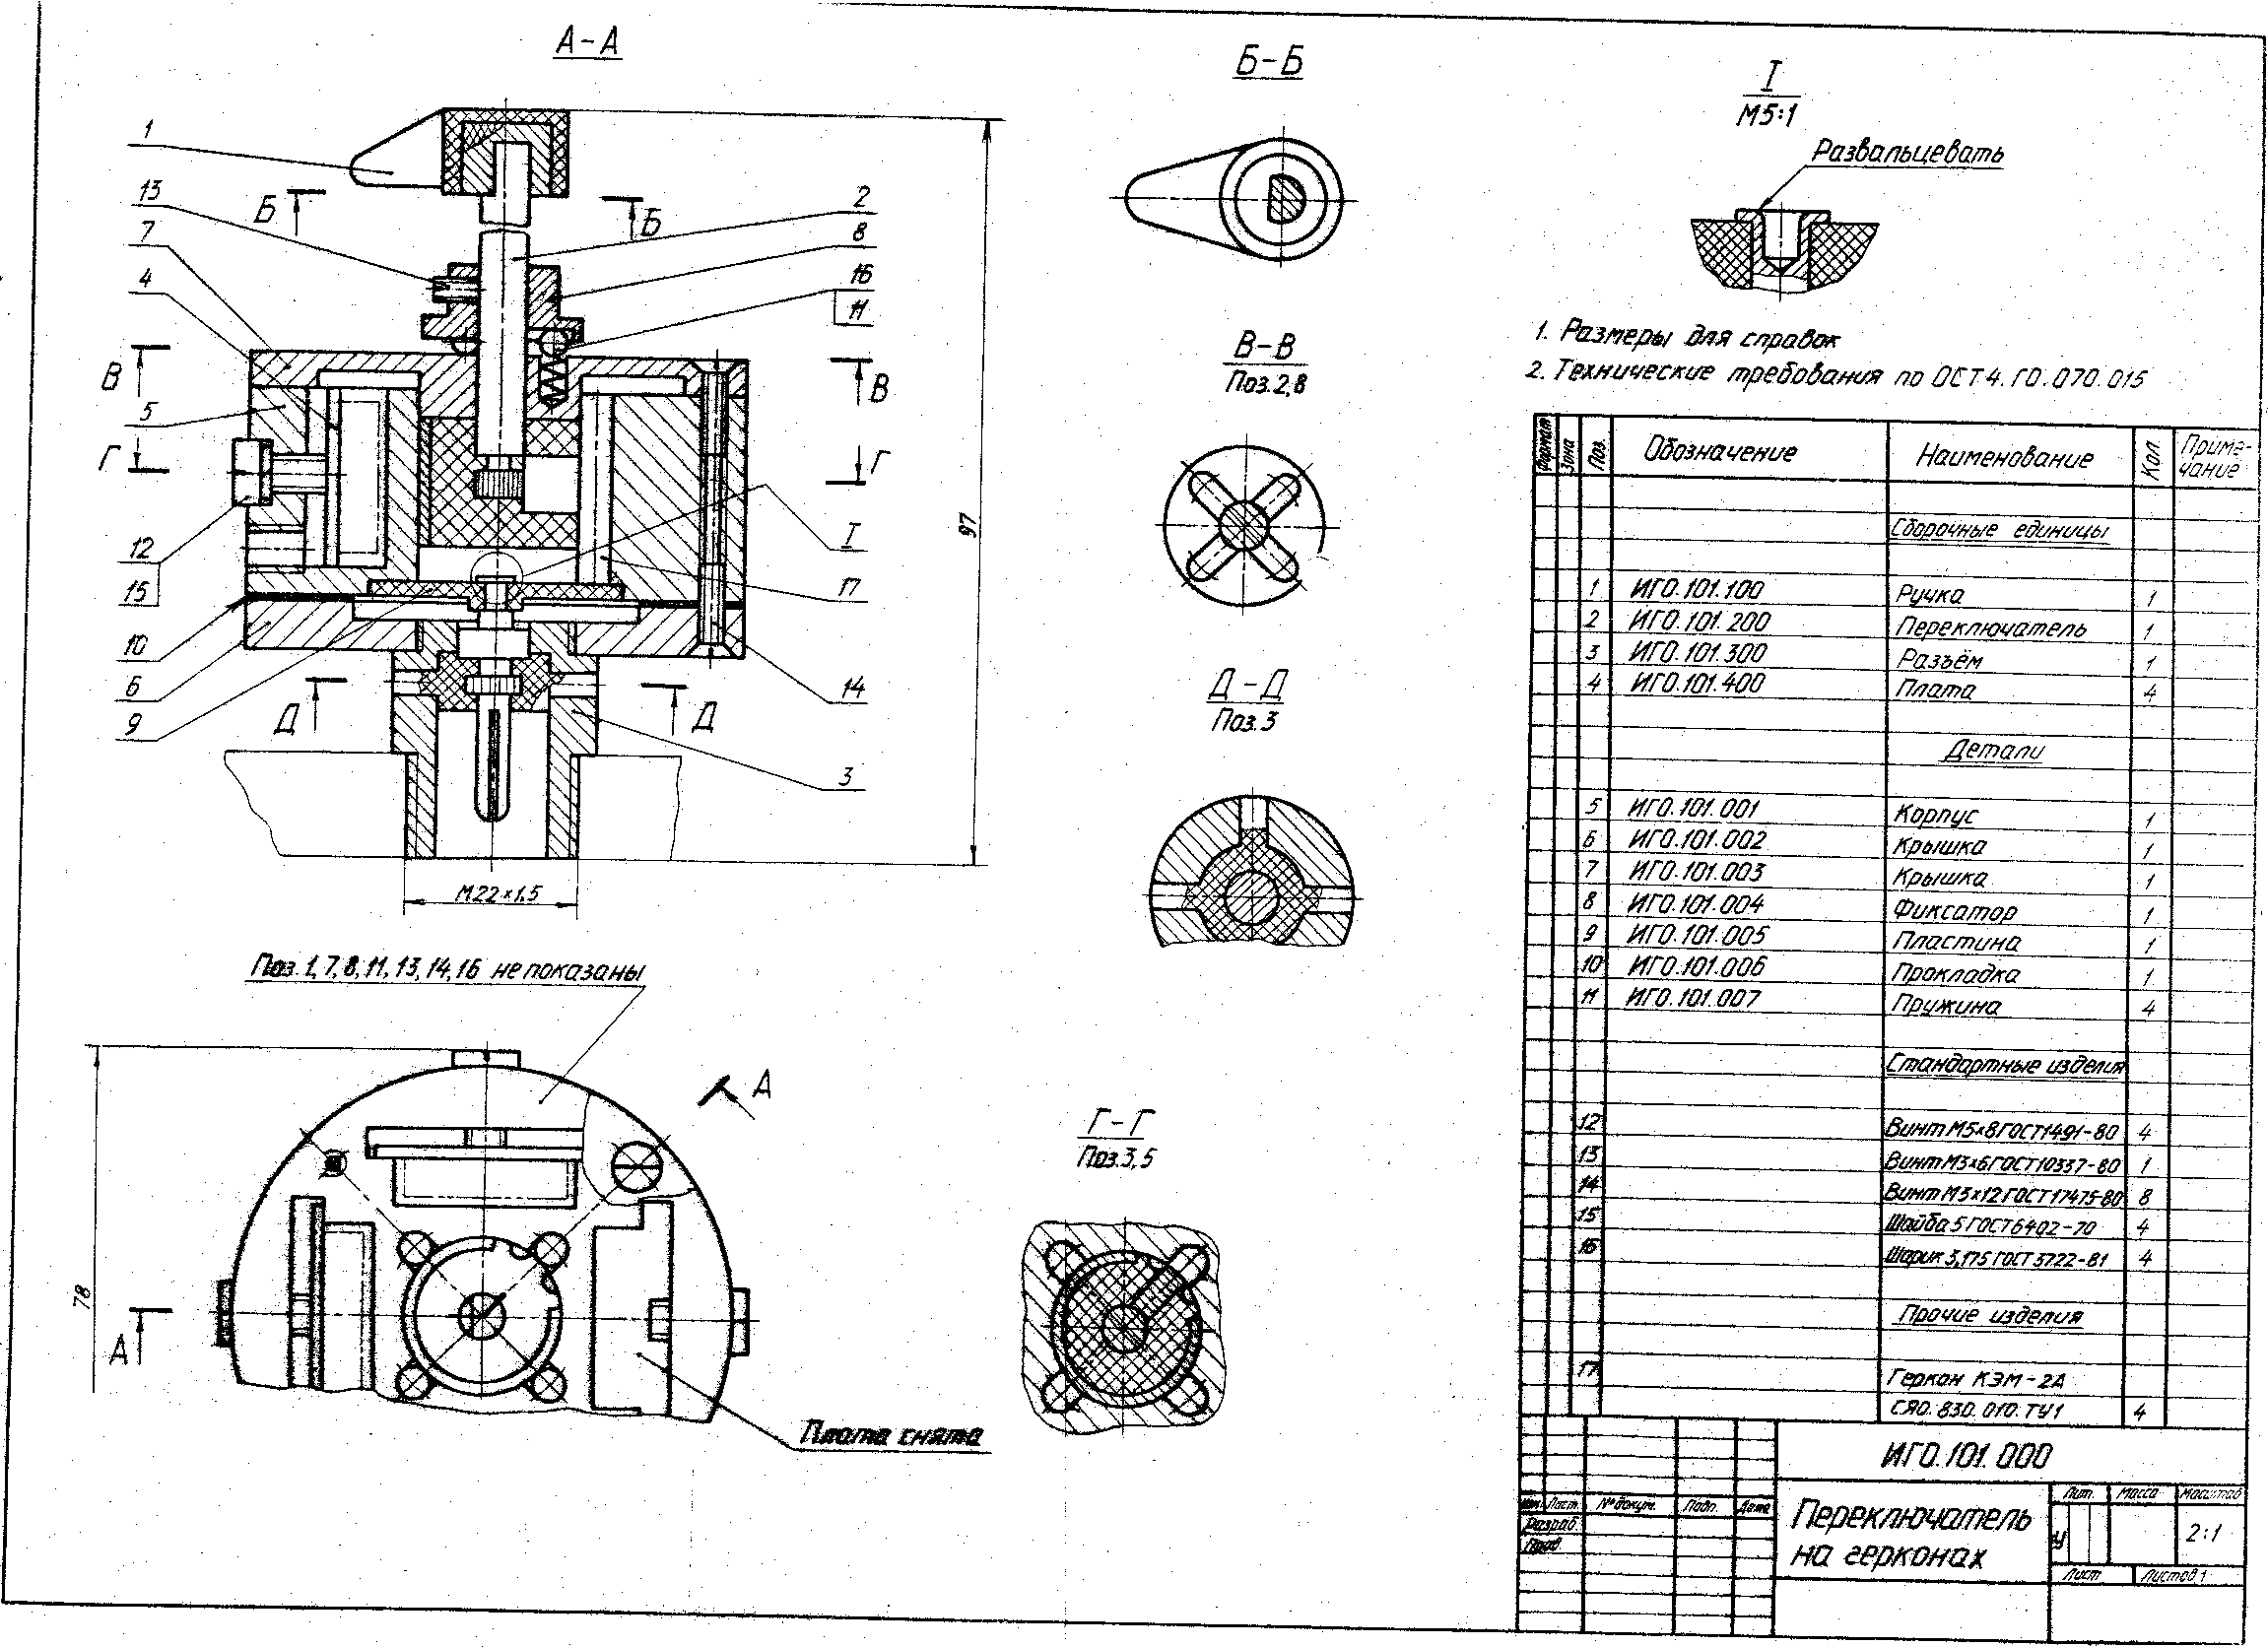 А-А
1
13
Б
Б
7
4
В
В
5
Г
Г
12
15
10
6
9
Д
Д
2
8
16
11
I
17
14
3
97
М22×1,5
Поз. 1, 7, 8, 11, 13, 14, 16 не показаны
78
А
А
Плата снята
Б-Б
В-В
Поз. 2, 8
Д-Д
Поз. 3
Г-Г
Поз. 3, 5
I
М5:1
Развальцевать
1. Размеры для справок
2. Технические требования по ОСТ4.ГО.070.015
Формат Зона Поз. Обозначение Наименование Кол. Приме-
чание
Сборочные единицы
1 ИГО.101.100 Ручка 1
2 ИГО.101.200 Переключатель 1
3 ИГО.101.300 Разъём 1
4 ИГО.101.400 Плата 4
Детали
5 ИГО.101.001 Корпус 1
6 ИГО.101.002 Крышка 1
7 ИГО.101.003 Крышка 1
8 ИГО.101.004 Фиксатор 1
9 ИГО.101.005 Пластина 1
10 ИГО.101.006 Прокладка 1
11 ИГО.101.007 Пружина 4
Стандартные изделия
12 Винт М5×8 ГОСТ 1491-80 4
13 Винт М3×6 ГОСТ 10337-80 1
14 Винт М3×12 ГОСТ 17475-80 8
15 Шайба 5 ГОСТ 6402-70 4
16 Шарик 3,175 ГОСТ 3722-81 4
Прочие изделия
17 Геркон КЭМ-2А
СЯ0.830.010.ТУ1 4
ИГО.101.000
Изм. Лист № докум. Подп. Дата
Разраб.
Пров.
Переключатель
на герконах
Лит. Масса Масштаб
У 2:1
Лист Листов 1